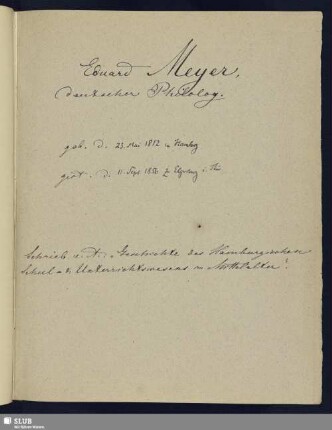 Eduard Meyer,
deutscher Philolog.
geb. d. 23. Mai 1812 in Hamburg
gest. d. 11. Sept. 1856 zu i. Th
Schrieb u. A.: „Geschichte des Hamburgischen
Schul- u. Unterrichtswesens im Mittelalter".
SLUB
Wir führen Wissen.